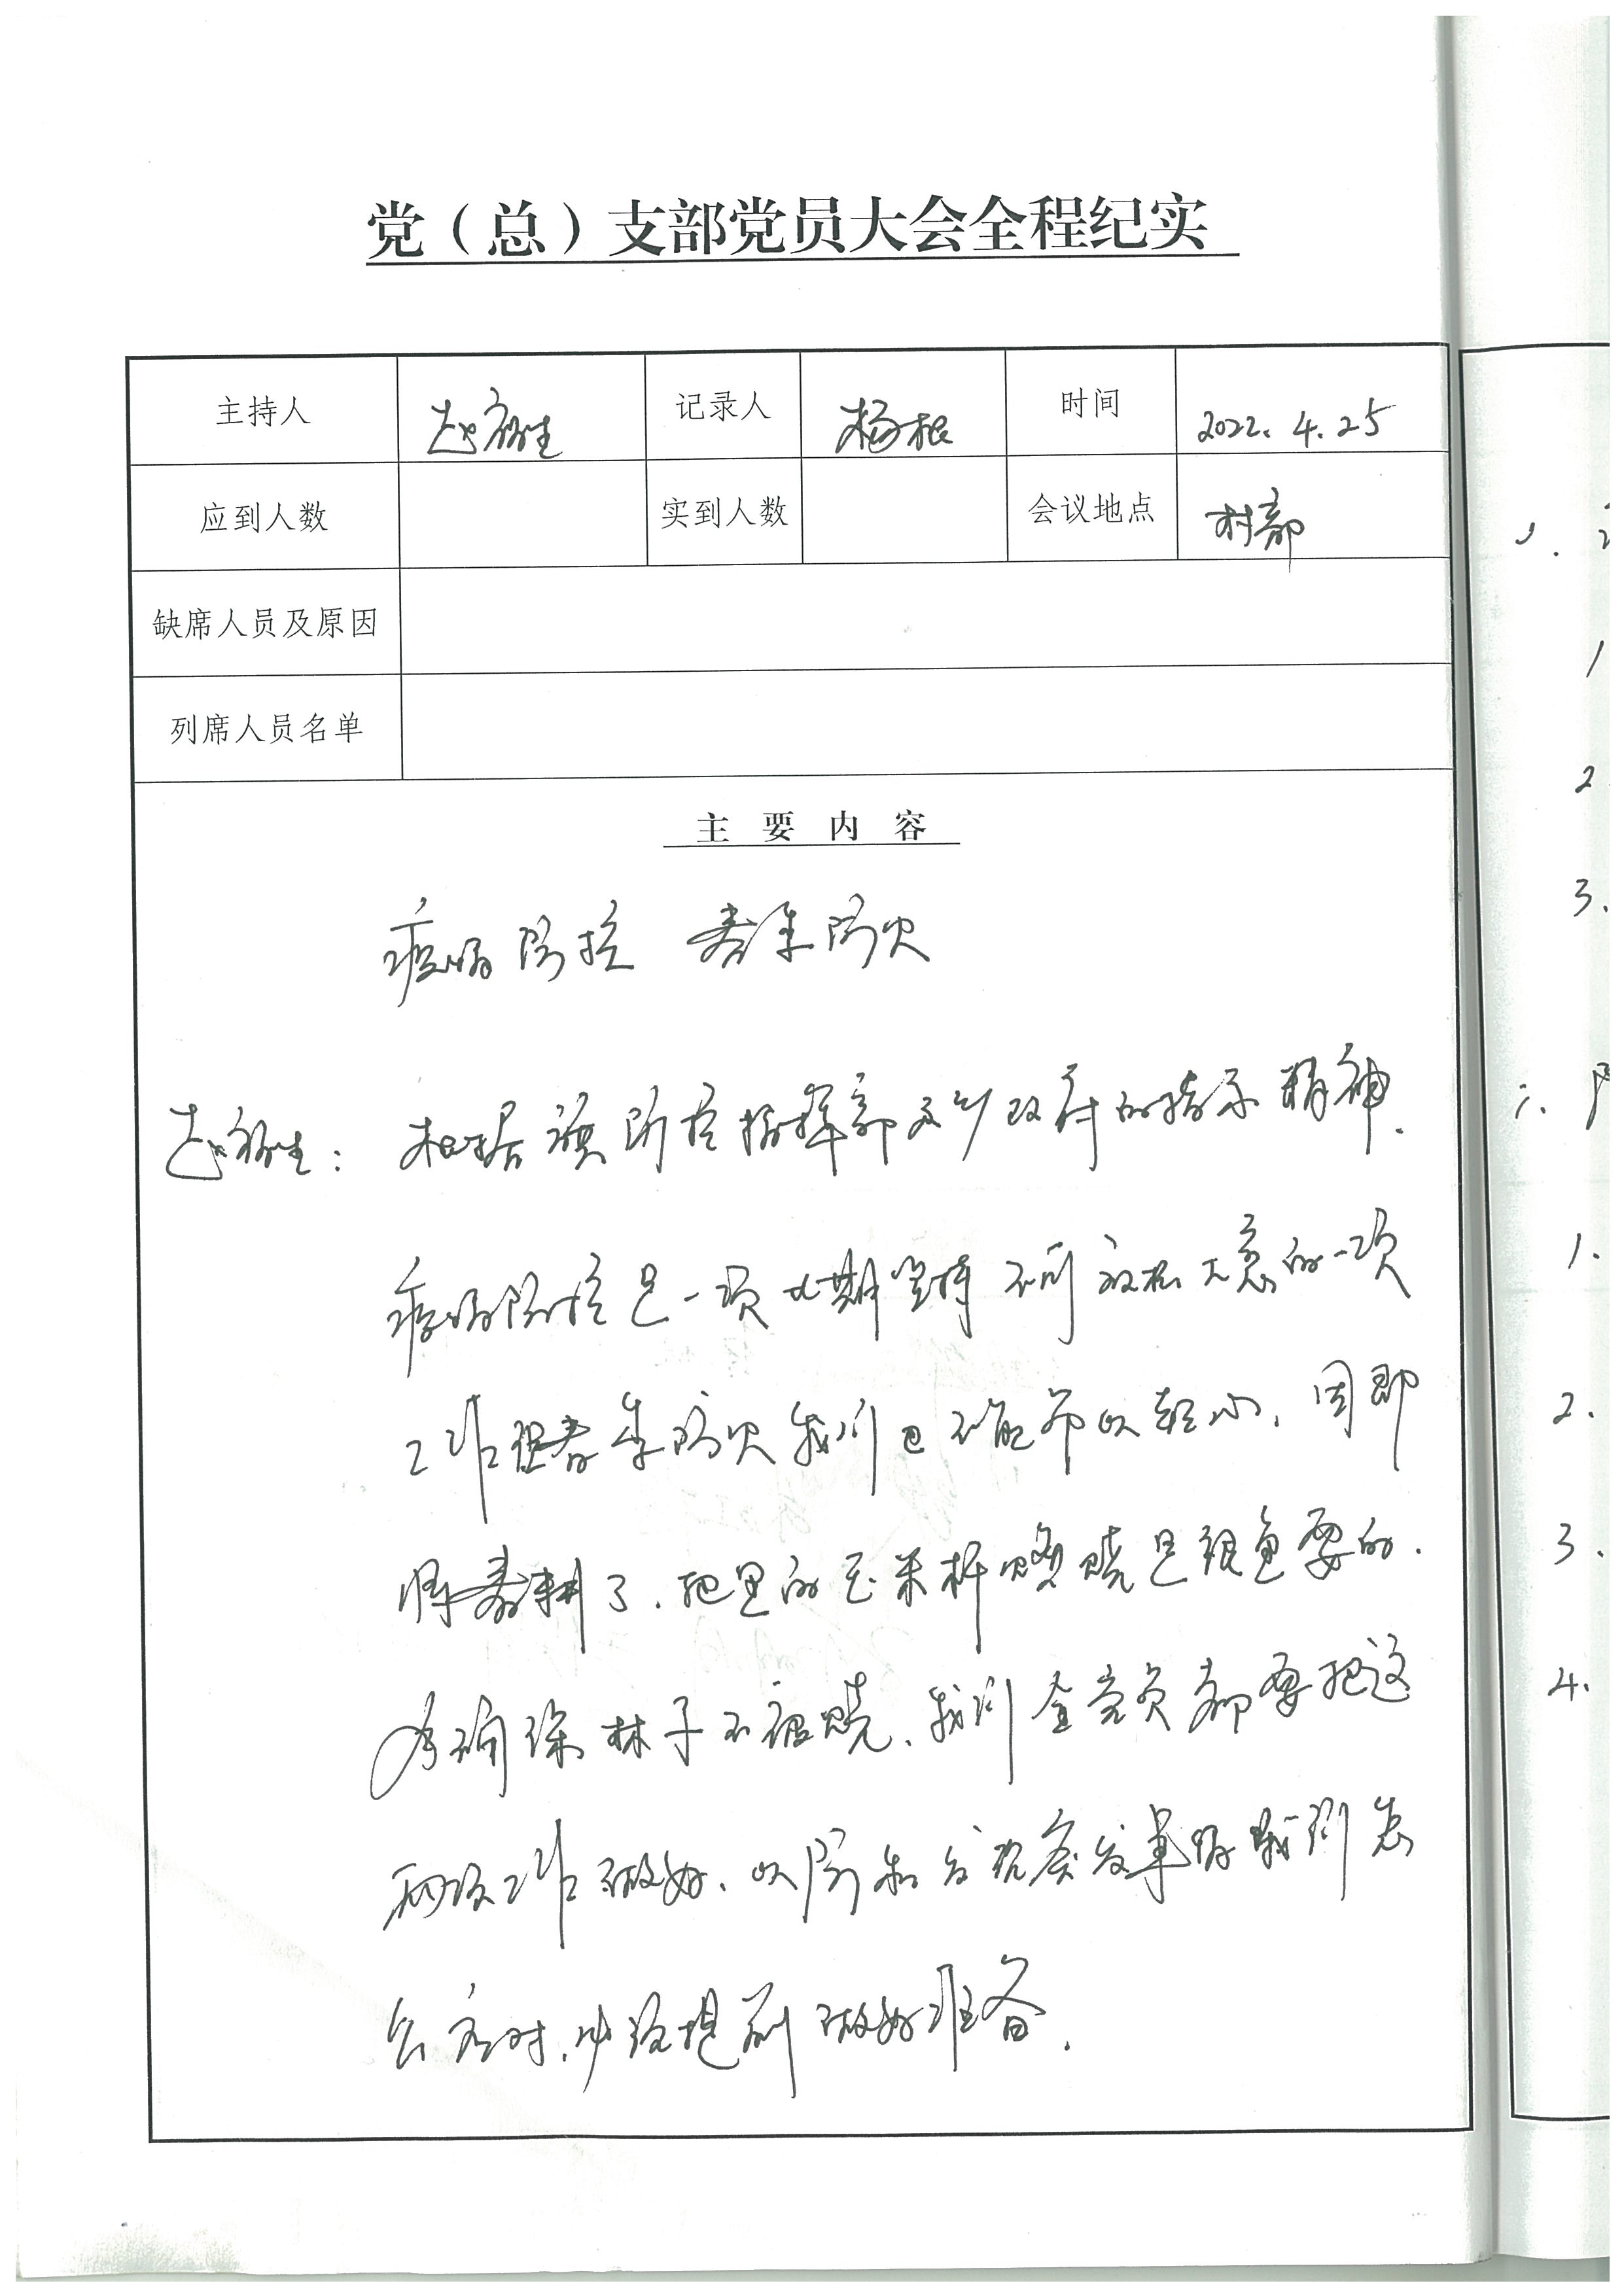 党（总）支部党员大会全程纪实
主持人 赵 生 记录人 杨根 时间 2022.4.25
应到人数 实到人数 会议地点 村部
缺席人员及原因
列席人员名单
主要内容
疫情防控 春季防火
赵 生： 根据旗防控指挥部及乡政府的指示精神.
疫情防控是一项长期坚持不可放松大意的一项
工作但春季防火我们也不能予以轻心、因即
将春耕了.地里的玉米秆 烧是很重要的.
确保林子不被烧、我们全党员都要把这
两项工作做好、以防 发事件我们怎
么应对.必须提前做好准备.
1
2
3.
1.
2.
3.
4.